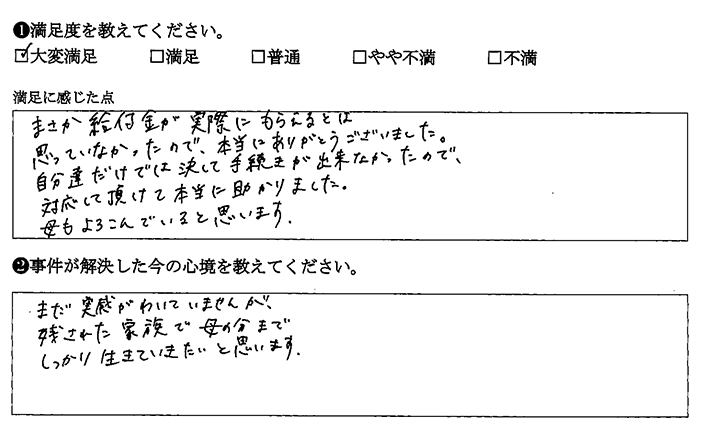 ❶満足度を教えてください。
☑大変満足 □満足 □普通 □やや不満 □不満
満足に感じた点
まさか給付金が実際にもらえるとは
思っていなかったので、本当にありがとうございました。
自分達だけでは決して手続きが出来なかったので、
対応して頂けて本当に助かりました。
母もよろこんでいると思います。
❷事件が解決した今の心境を教えてください。
まだ実感がわいていませんが、
残された家族で母の分まで
しっかり生きていきたいと思います。